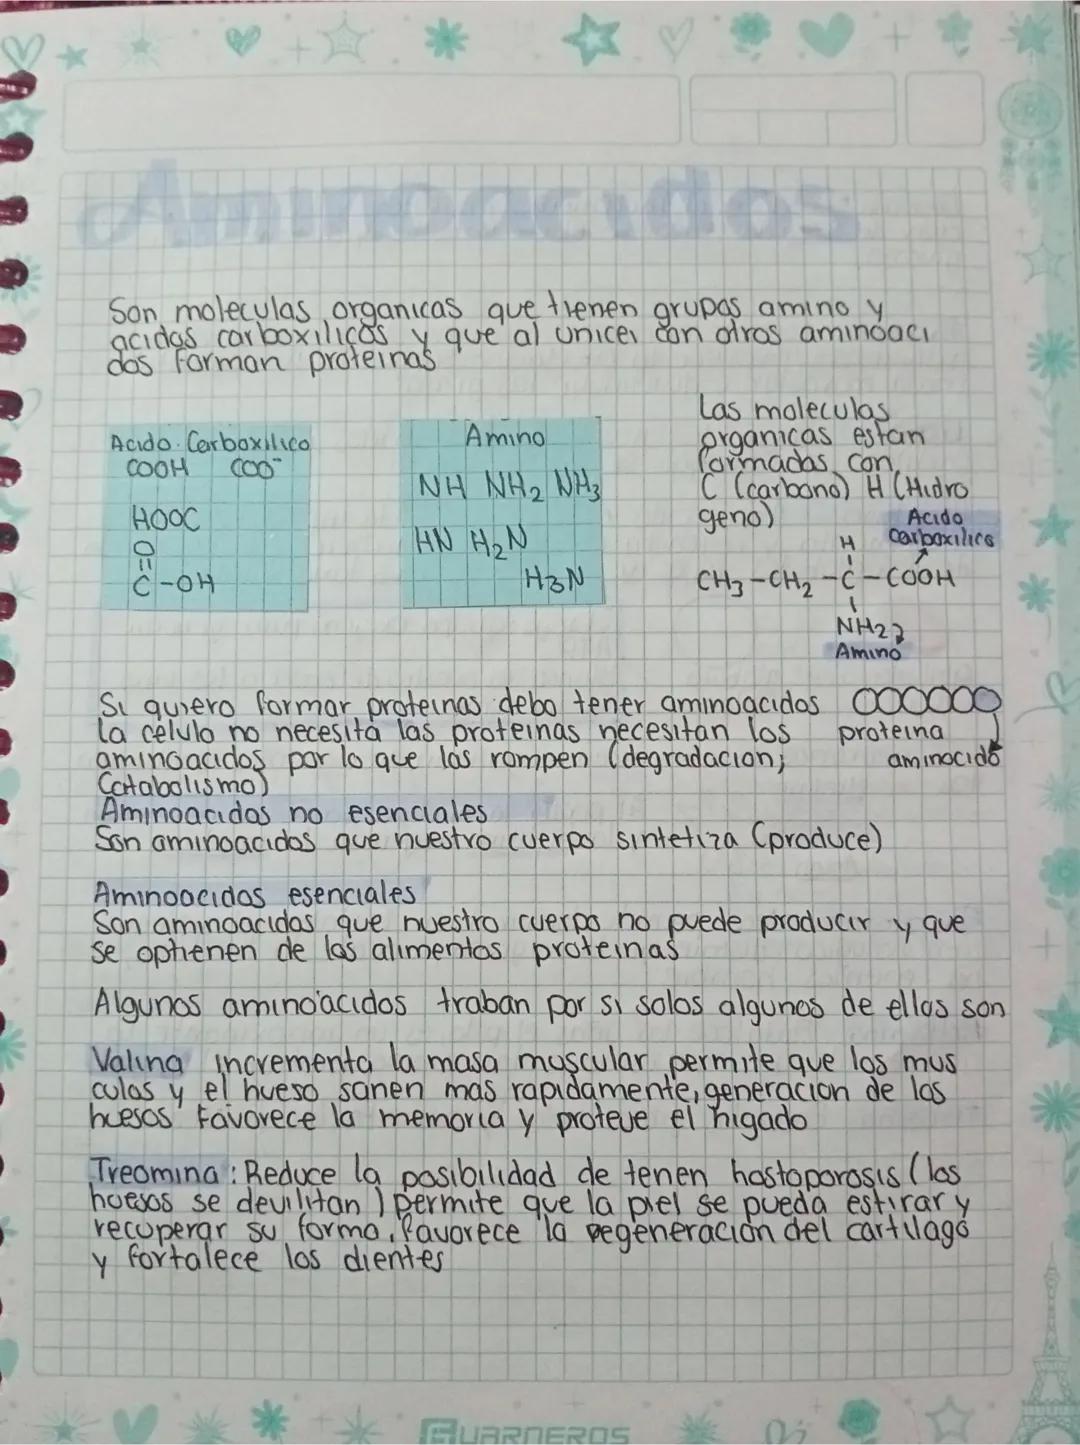 Aminoacidos
Son moleculas organicas que tienen grupos amino y
acidos carboxilicos y que al unicer con otros aminoaci
dos forman proteinas
Acido Carboxilico
COOH COO⁻
HOOC
O
=
C-OH
Amino
NH NH₂ NH₃
HN H₂N
H₃N
Las moleculas
organicas estan
formadas con
C (carbono) H (Hidro
geno)
Acido
carboxilico
H
CH₃-CH₂-C-COOH
NH₂
Amino
Si quiero formar proteinas debo tener aminoacidos
la celula no necesita las proteinas necesitan los
aminoacidos por lo que las rompen (degradacion;
Catabolismo)
proteina
aminocido
Aminoacidos no esenciales
Son aminoacidos que nuestro cuerpo sintetiza (produce)
Aminoacidos esenciales
Son aminoacidos que nuestro cuerpo no puede producir y que
se optienen de los alimentos proteinas
Algunos aminoacidos traban por si solos algunos de ellos son
Valina incrementa la masa muscular permite que los mus
culos y el hueso sanen mas rapidamente, generacion de los
huesos favorece la memoria y proteve el higado
Treomina: Reduce la posibilidad de tenen hostoporosis (los
huesos se devilitan) permite que la piel se pueda estirar y
recuperar su forma, favorece la regeneracion del cartilago
y fortalece los dientes
GUARNEROS